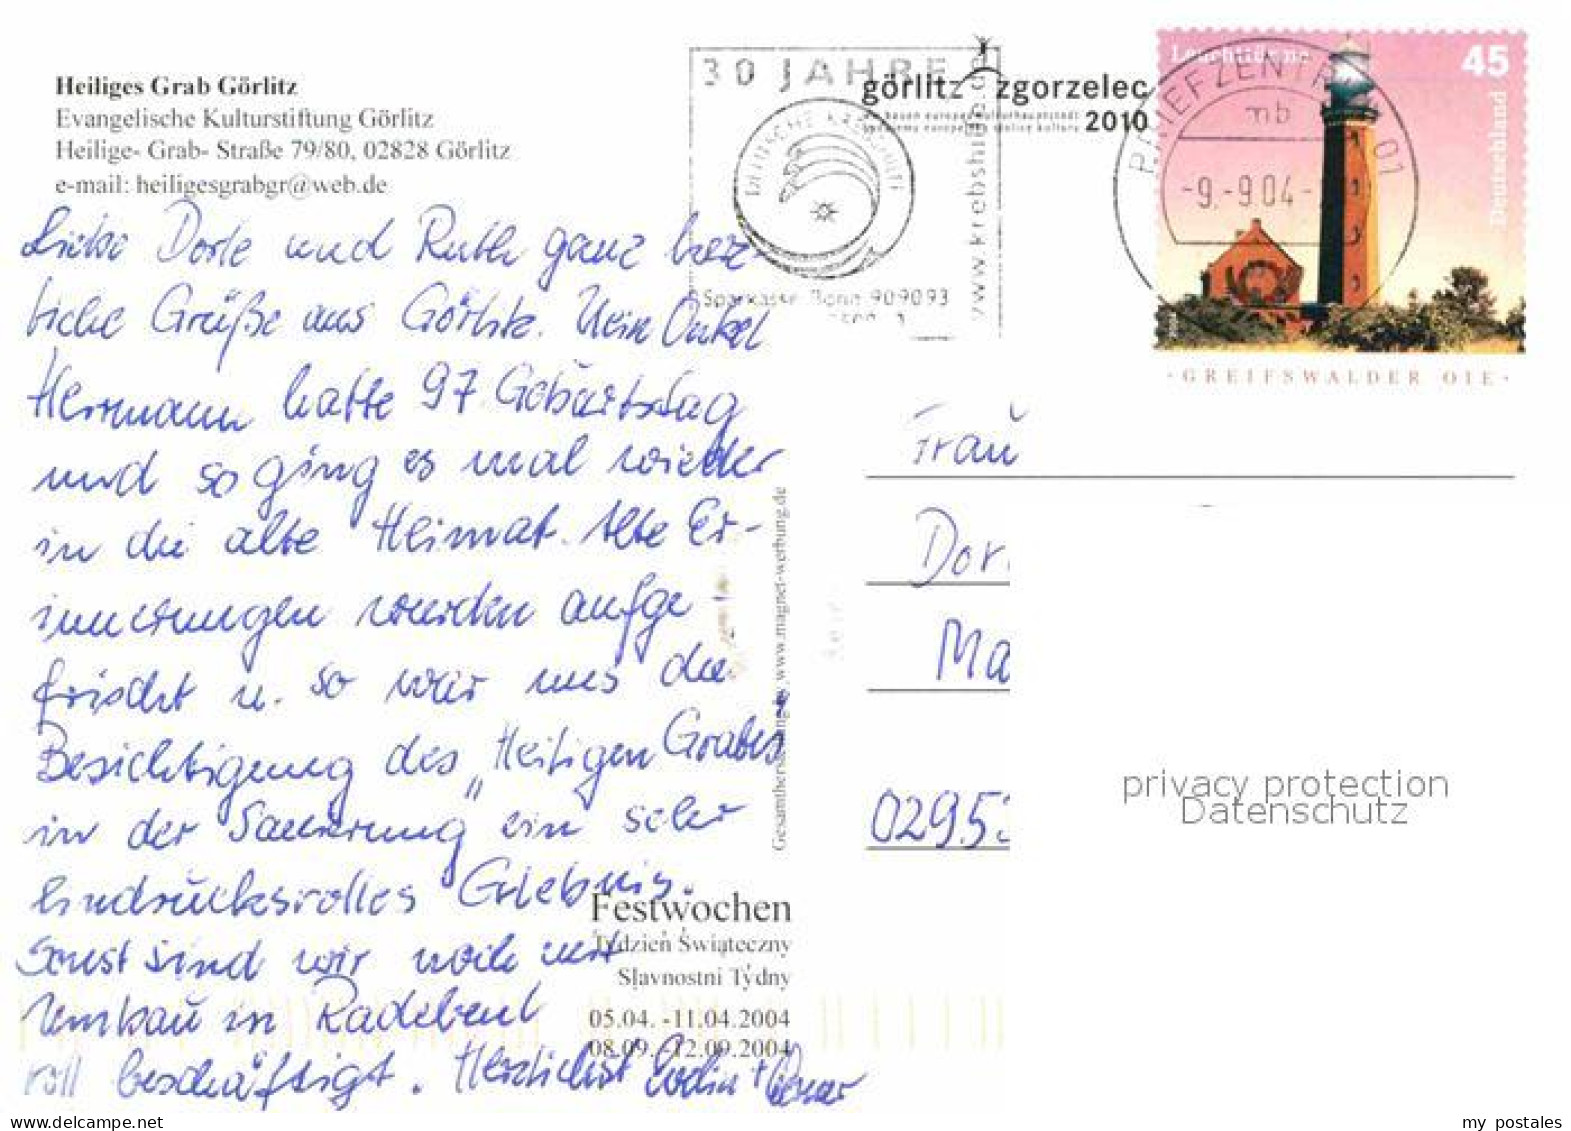 Heiliges Grab Görlitz
Evangelische Kulturstiftung Görlitz
Heilige- Grab- Straße 79/80, 02828 Görlitz
e-mail: heiligesgrabgr@web.de
Liebe Dorle und Ruth ganz herz-
liche Grüße aus Görlitz. Mein Onkel
Herrmann hatte 97. Geburtstag
und so ging es mal wieder
in die alte Heimat. Alte Er-
innerungen wurden aufge
frischt u. so war uns die
Besichtigung des „Heiligen Grabes
in der Sanierung ein sehr
eindrucksvolles Erlebnis.
Sonst sind wir noch mit
Umbau in Radebeul
voll beschäftigt. Herzlichst
Festwochen
Tydzień Świąteczny
Slavnostni Týdny
05.04. -11.04.2004
08.09. -12.09.2004
www.magnet-werbung.de
30 JAHRE
DEUTSCHE KREBSHILFE
Sparkasse Bonn 909093
www.krebshilfe.de
görlitz zgorzelec
2010
BRIEFZENTRUM 01
mb
-9.-9.04-
Leuchttürme
45
Deutschland
2004
·GREIFSWALDER OIE·
Frau
Dor
Ma
0295
privacy protection
Datenschutz
my postales